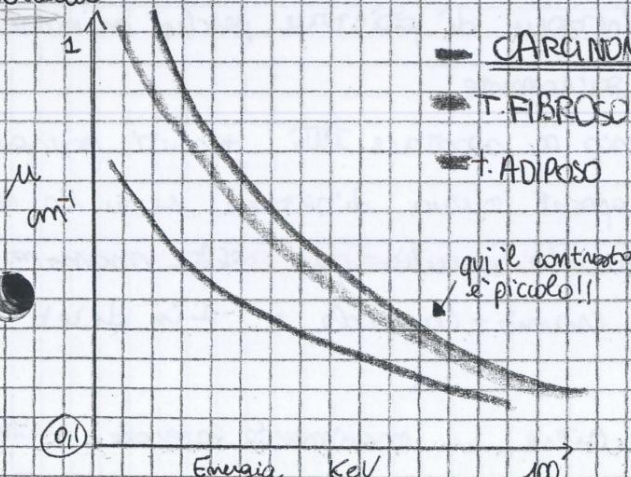 1
CARCINOM
T. FIBROSO
T. ADIPOSO
μ
cm⁻¹
qui il contrasto
è piccolo!!
0,1
Energia KeV 100